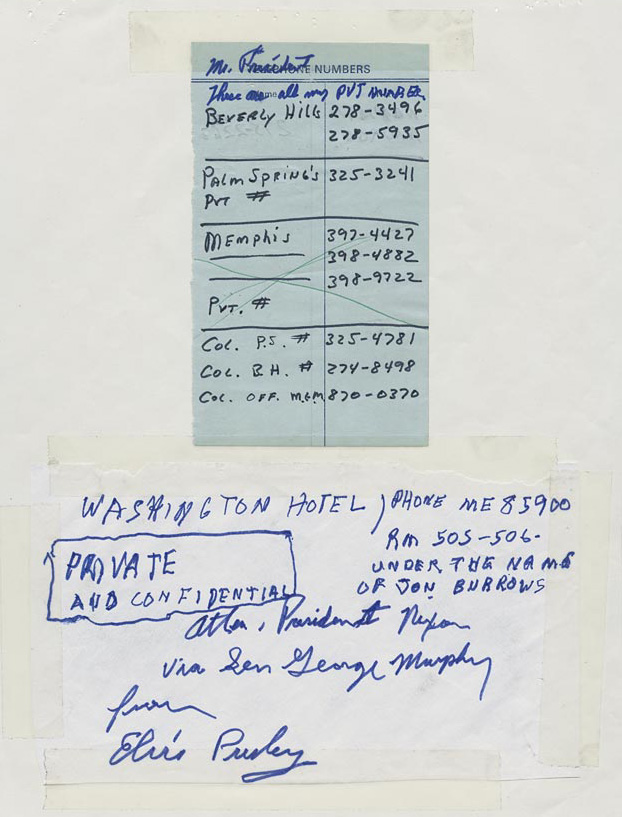 Mr. President
TELEPHONE NUMBERS
These are all my PVT NUMBERS
BEVERLY HILLS 278-3496
278-5935
PALM SPRING'S 325-3241
PVT #
MEMPHIS 397-4427
398-4882
398-9722
PVT. #
COL. P.S. # 325-4781
COL. B.H. # 274-8498
COL. OFF. M.G.M. 870-0370
WASHINGTON HOTEL) PHONE ME 85900
RM 505-506-
UNDER THE NAME
OF JON BURROWS
PRIVATE
AND CONFIDENTIAL
Atten. President Nixon
via Sen George Murphy
from
Elvis Presley